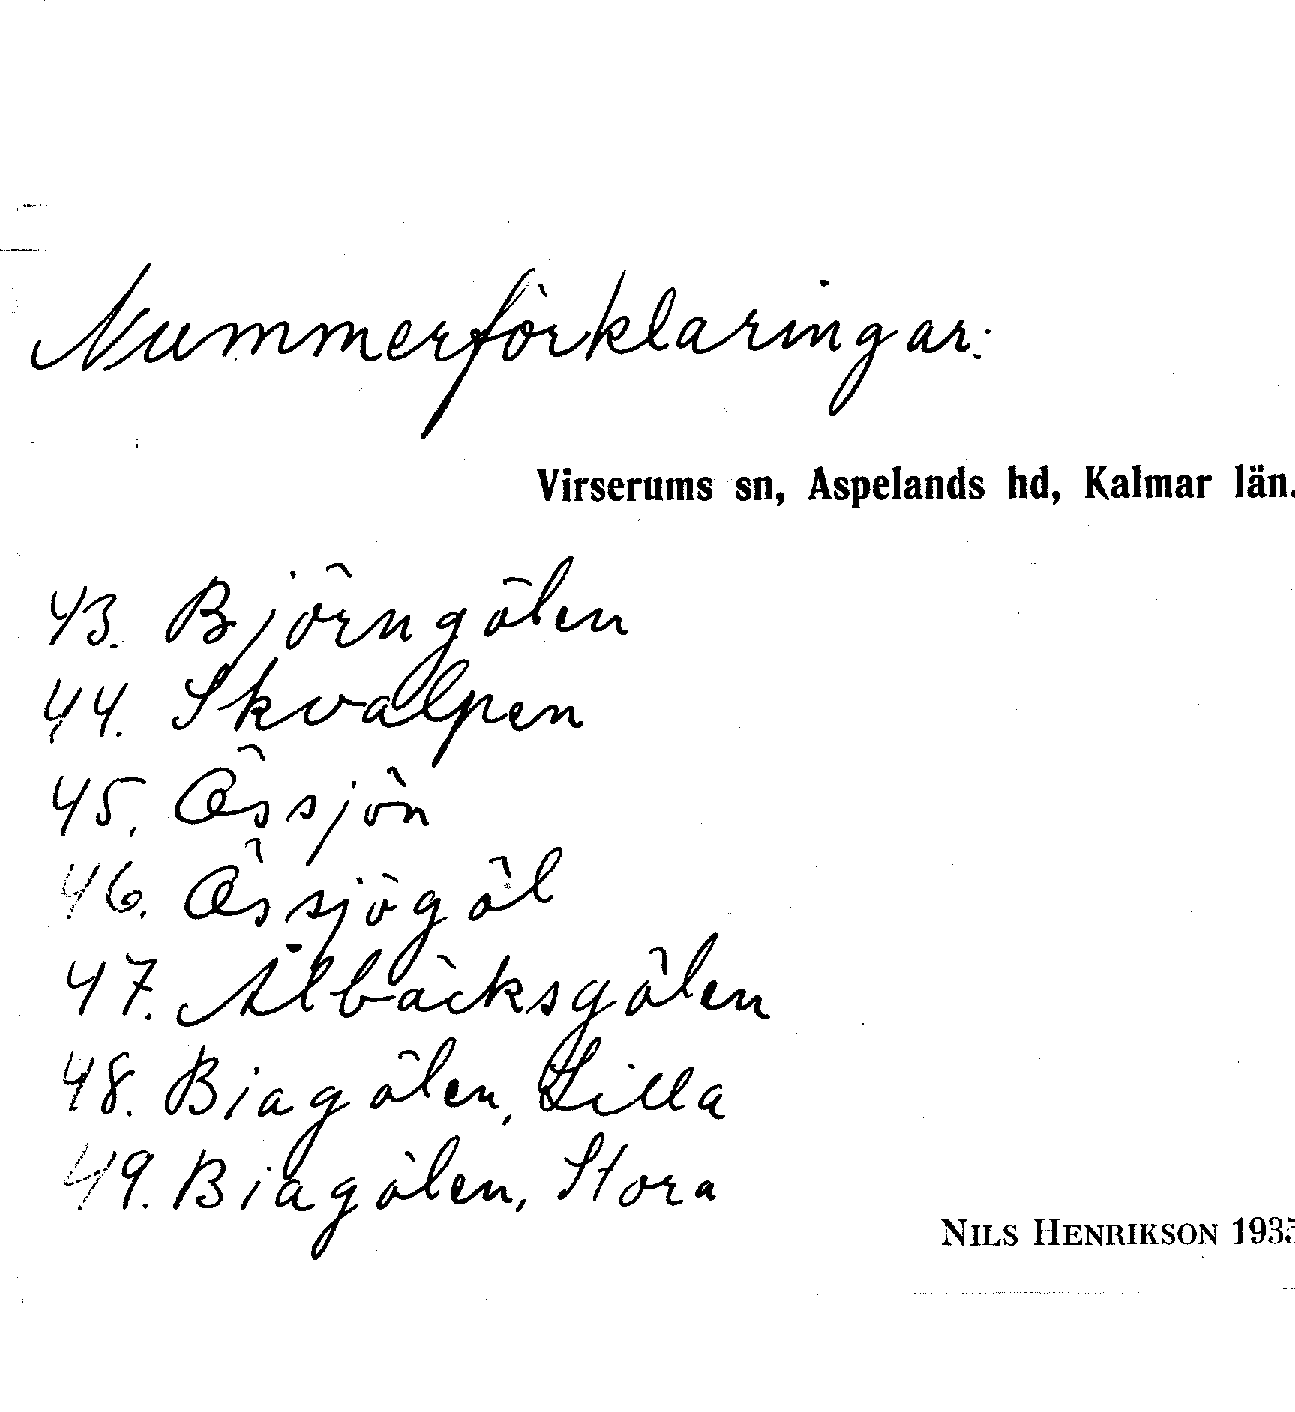 Nummerförklaringar:
Virserums sn, Aspelands hd, Kalmar län.
43. Björngölen
44. Skvalpen
45. Össjön
46. Össjögöl
47. Ålbäcksgölen
48. Biagölen, Lilla
49. Biagölen, Stora
NILS HENRIKSON 1935